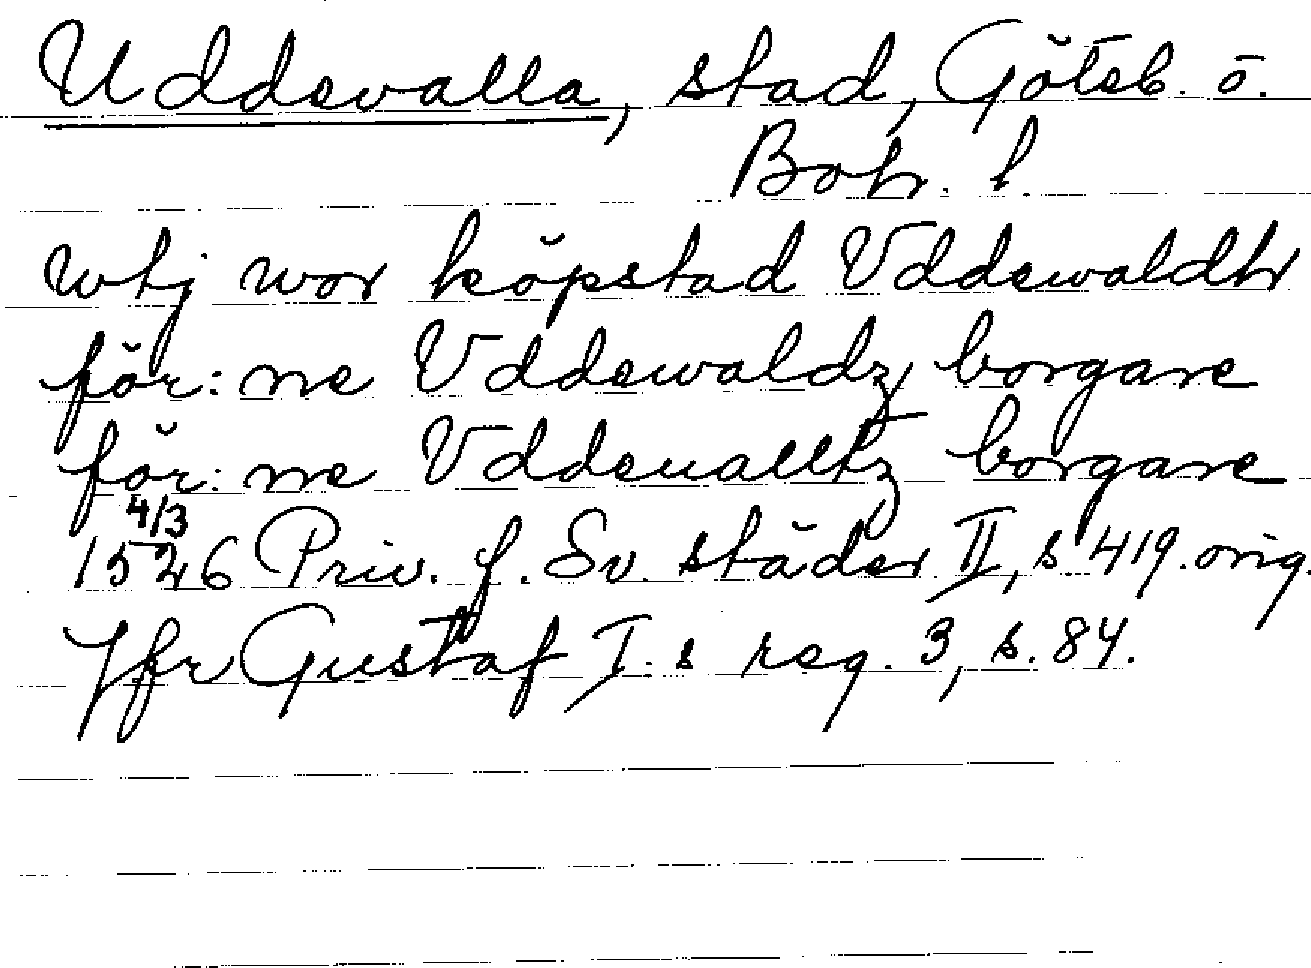 Uddevalla, stad, Göteb. o.
Boh. l.
wtj wor köpstad Vddewaldh
för:ne Vddewaldz borgare
för:ne Vddeualltz borgare
4/3
1526 Priv. f. Sv. städer II, s 419. orig.
Jfr Gustaf I:s reg. 3, s. 84.